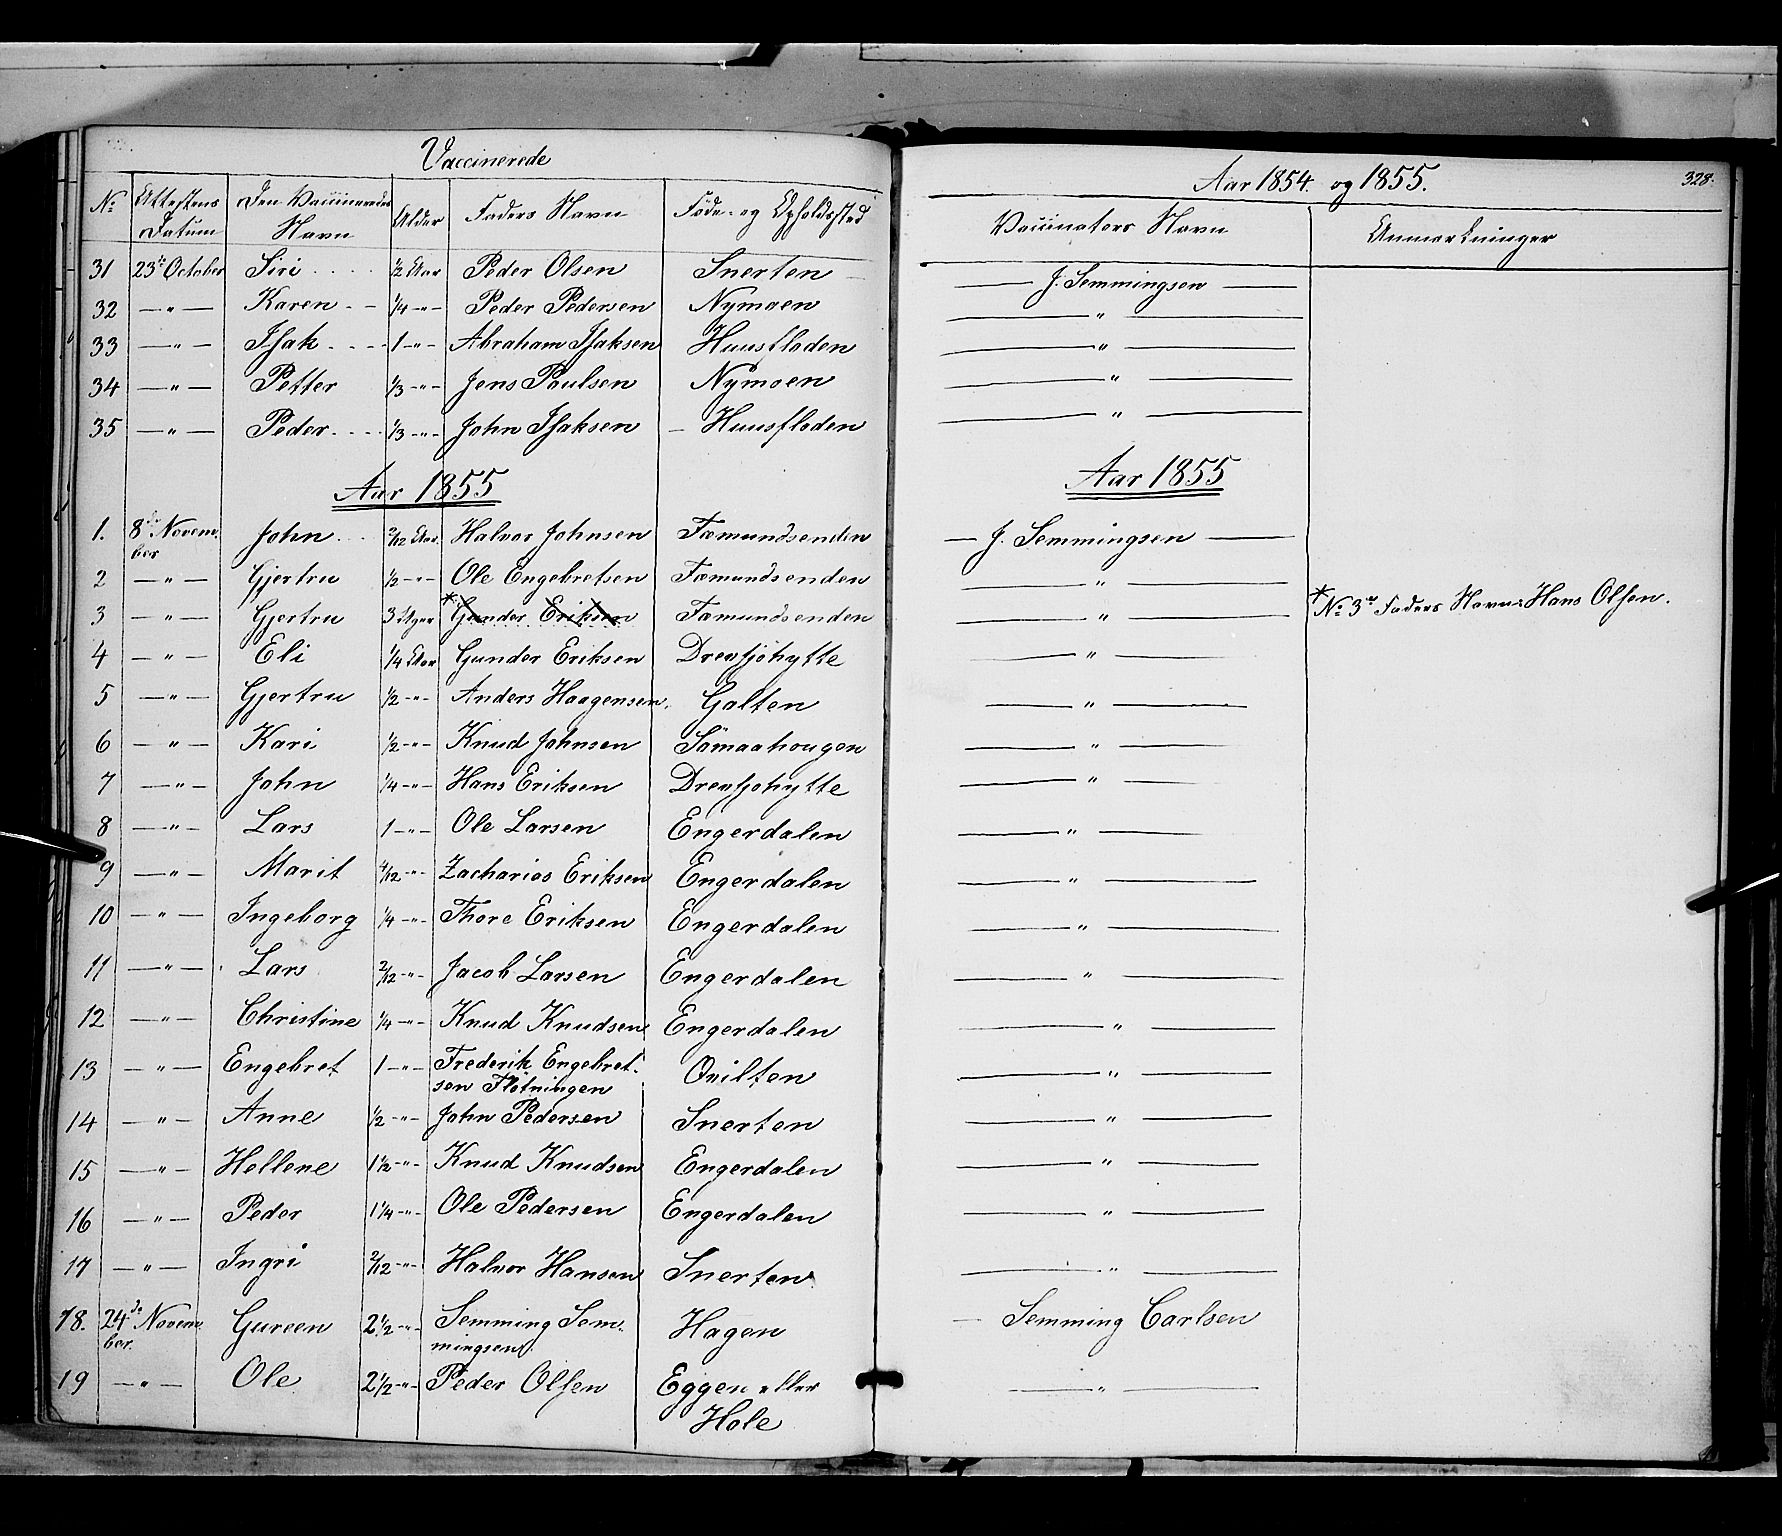 Vaccinerede
Aar 1854. og 1855.
328.
No Attestens Datum Den Vaccineredes Navn Alder Faders Navn Føde- og Opholdssted Vaccinators Navn Anmærkninger
31 23de October Siri 1/2 Aar Peder Olsen Snerten J. Semmingsen
32 —"— Karen 1/4 —"— Peder Pedersen Nymoen "
33 —"— Isak 1 —"— Abraham Isaksen Huusfloden "
34 —"— Petter 1/3 —"— Jens Paulsen Nymoen "
35 —"— Peder 1/3 —"— John Isaksen Huusfloden "
Aar 1855 Aar 1855
1. 8de Novem- John 2/12 Aar. Halvor Johnsen Fæmundsenden J. Semmingsen
ber
2 —"— Gjertru 1/2 —"— Ole Engebretsen Fæmundsenden "
3 —"— Gjertru 3 Uger * Gunder Eriksen Fæmundsenden " * No 3es Faders Navn: Hans Olsen.
4 —"— Eli 1/4 Aar Gunder Eriksen Drevsjøhytte "
5 —"— Gjertru 1/2 —"— Anders Haagensen Galten "
6 —"— Kari 1/2 —"— Knud Johnsen Sömaahougen "
7 —"— John 1/4 —"— Hans Eriksen Drevsjøhytte "
8 —"— Lars 1 —"— Ole Larsen Engerdalen "
9 —"— Marit 4/12 —"— Zacharias Eriksen Engerdalen "
10 —"— Ingeborg 1/4 —"— Thore Eriksen Engerdalen "
11 —"— Lars 2/12 —"— Jacob Larsen Engerdalen "
12 —"— Christine 1/4 —"— Knud Knudsen Engerdalen "
13 —"— Engebret 1 —"— Frederik Engebret- Qvilten "
sen Fløtningen
14 —"— Anne 1/2 —"— John Pedersen Snerten "
15 —"— Hellene 1 1/2 —"— Knud Knudsen Engerdalen "
16 —"— Peder 1 1/4 —"— Ole Pedersen Engerdalen "
17 —"— Ingri 2/12 —"— Halvor Hansen Snerten "
18. 24de Novem- Gureen 2 1/2 —"— Semming Sem- Hagen Semming Carlsen
ber. mingsen
19 —"— Ole 2 1/2 —"— Peder Olsen Eggen eller "
Hole